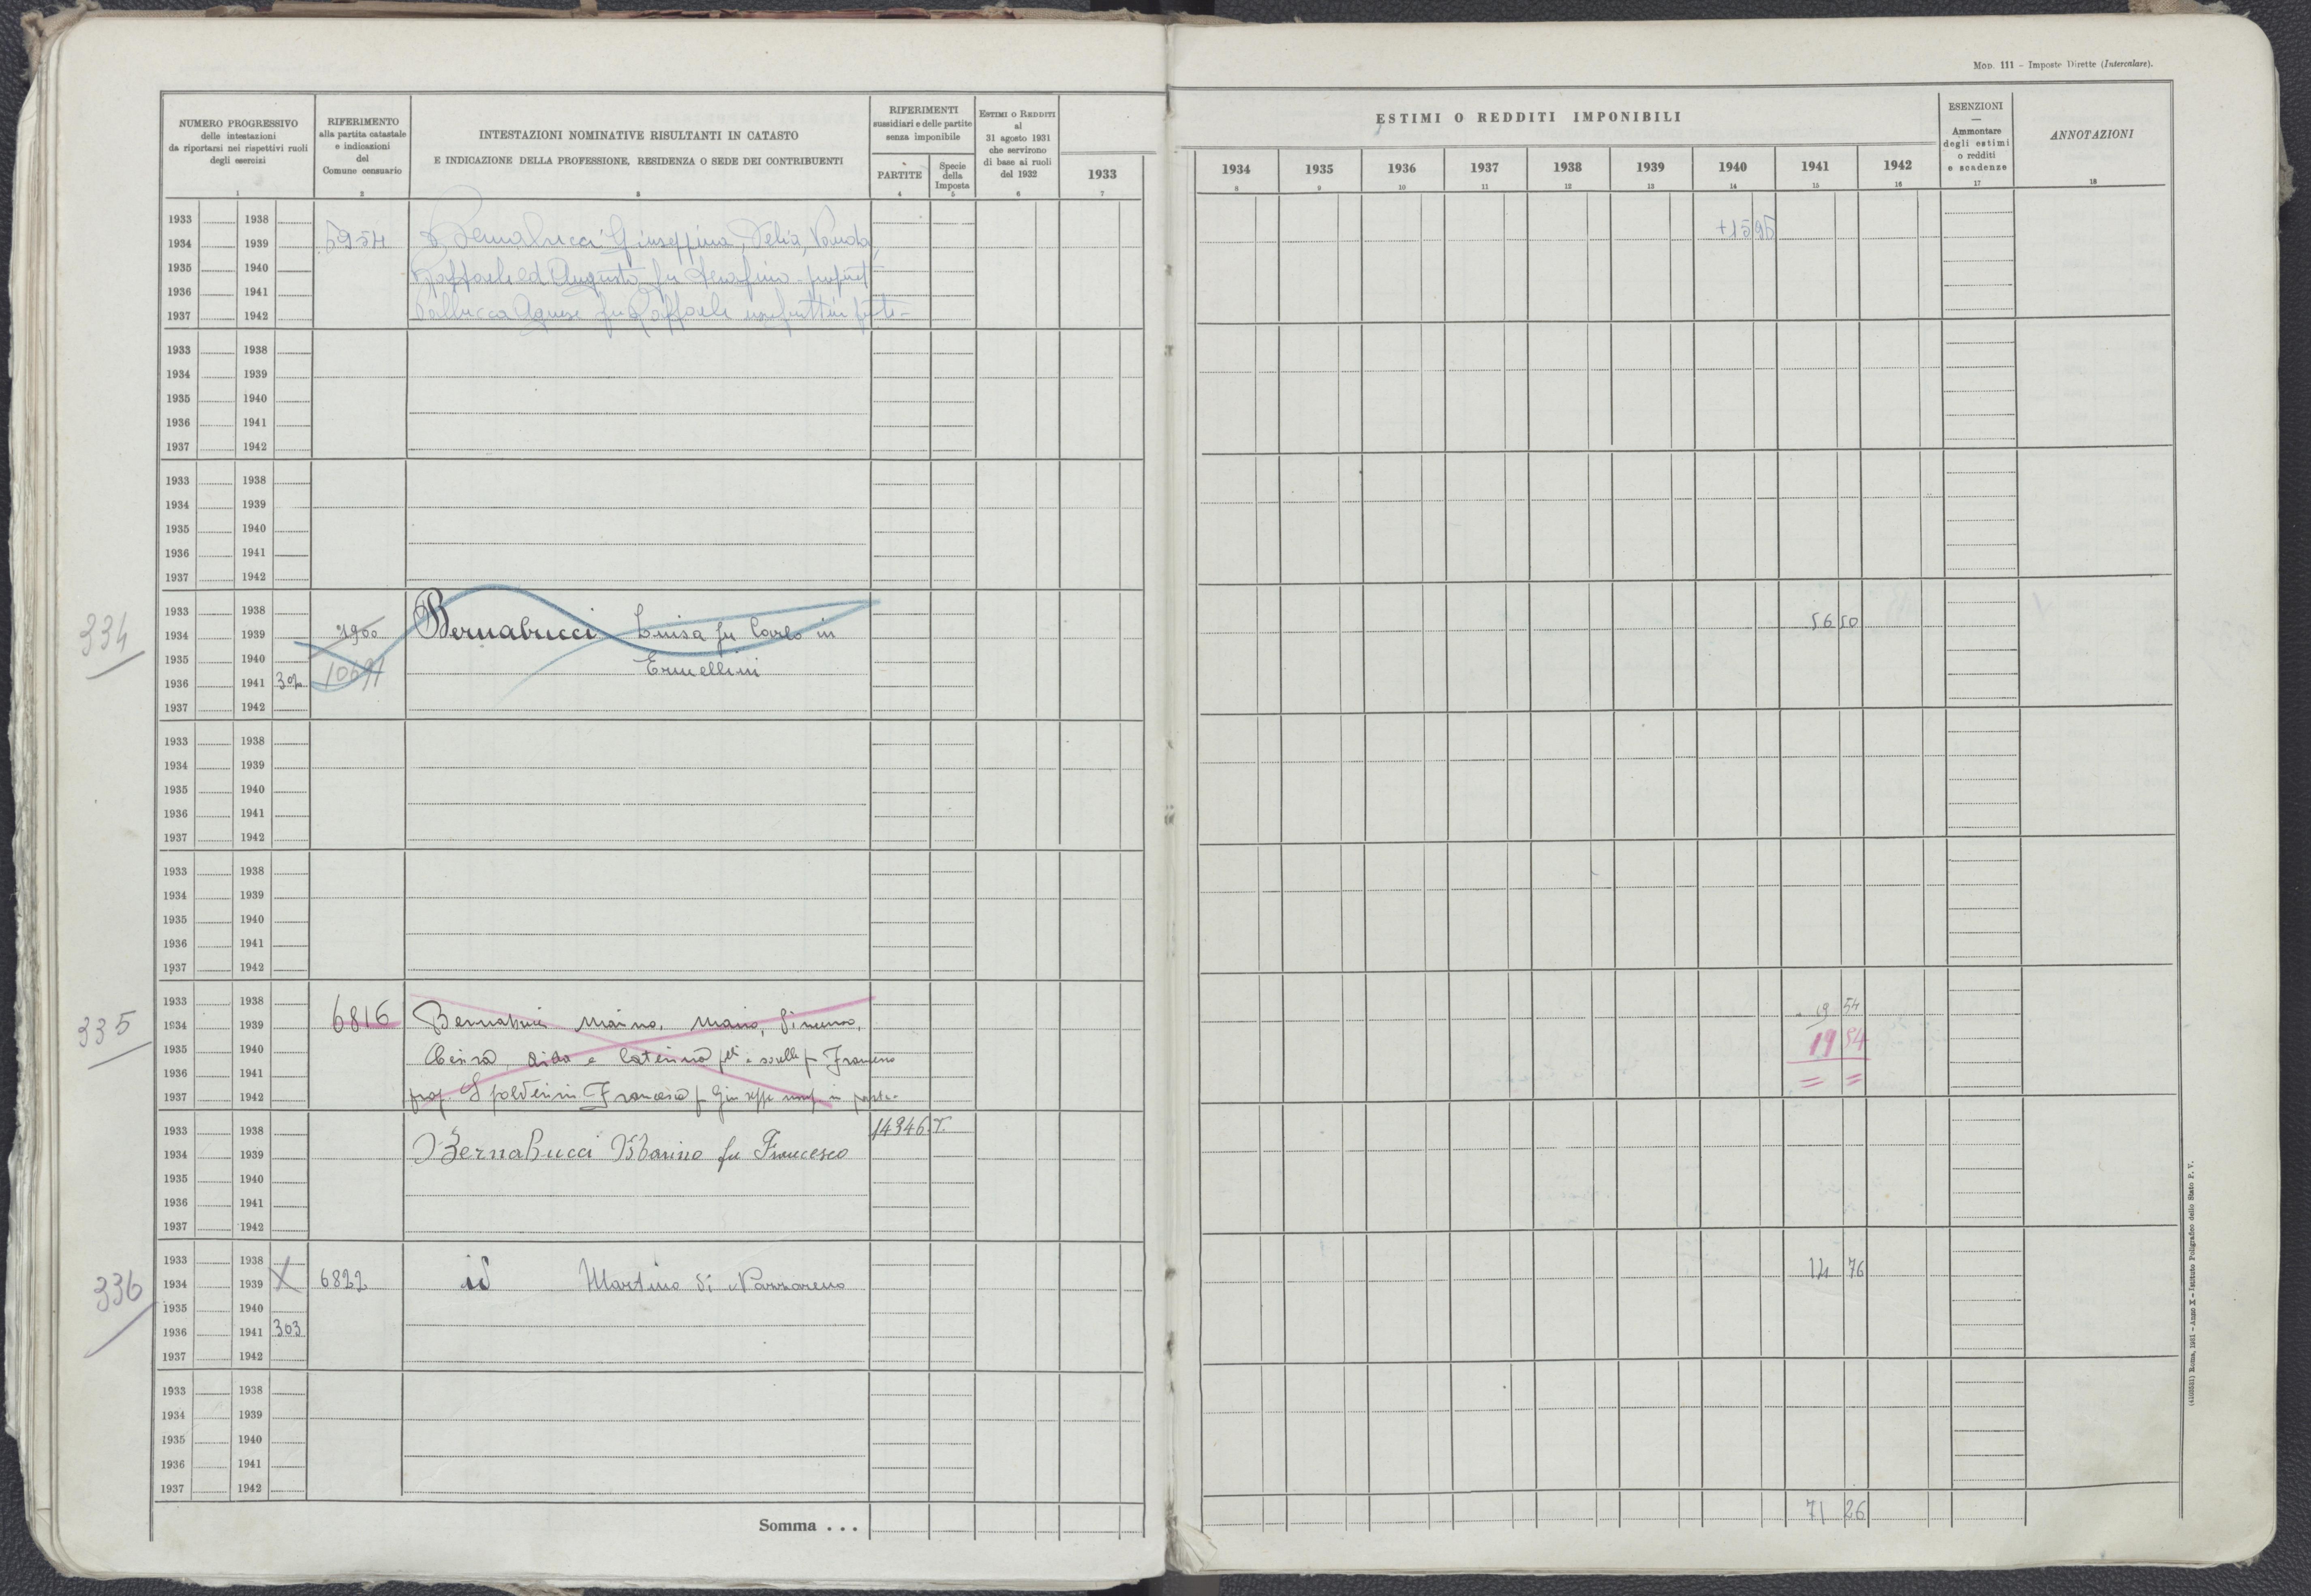 MOD. 111 – Imposte Dirette (Intercalare).
NUMERO PROGRESSIVO
delle intestazioni
da riportarsi nei rispettivi ruoli
degli esercizi
1
RIFERIMENTO
alla partita catastale
e indicazioni
del
Comune censuario
2
INTESTAZIONI NOMINATIVE RISULTANTI IN CATASTO
E INDICAZIONE DELLA PROFESSIONE, RESIDENZA O SEDE DEI CONTRIBUENTI
3
RIFERIMENTI
sussidiari e delle partite
senza imponibile
PARTITE
4
Specie
della
Imposta
5
ESTIMI O REDDITI
al
31 agosto 1931
che servirono
di base ai ruoli
del 1932
6
1933
7
ESTIMI O REDDITI IMPONIBILI
1934 1935 1936 1937 1938 1939 1940 1941 1942
8 9 10 11 12 13 14 15 16
ESENZIONI
—
Ammontare
degli estimi
o redditi
e scadenze
17
ANNOTAZIONI
18
1933 1938
1934 1939 5954 Bernabucci Giuseppina, Delia, Vanda, +15 95
1935 1940 Raffaele ed Augusto fu Serafino - propriet
1936 1941
1937 1942 Agnese fu Raffaele
1933 1938
1934 1939
1935 1940
1936 1941
1937 1942
1933 1938
1934 1939
1935 1940
1936 1941
1937 1942
1933 1938
334 1934 1939 Bernabucci Luisa fu Carlo in 56 50
1935 1940 Ermellini
1936 1941 302
1937 1942
1933 1938
1934 1939
1935 1940
1936 1941
1937 1942
1933 1938
1934 1939
1935 1940
1936 1941
1937 1942
1933 1938 19 54
335 1934 1939 6816 Bernabucci Marino, Mario, 19 54
1935 1940 Aida e Caterina f.lli e sorelle fu Francesco
1936 1941 = =
1937 1942 prop. Spolverini Francesca fu Giuseppe usuf. in parte.
1933 1938 14346 T.
1934 1939 Bernabucci Marino fu Francesco
1935 1940
1936 1941
1937 1942
1933 1938
336 1934 1939 X 6822 id Martino di Nazzareno 14 76
1935 1940
1936 1941 303
1937 1942
1933 1938
1934 1939
1935 1940
1936 1941
1937 1942
Somma . . . 71 26
(4103331) Roma, 1931 – Anno X – Istituto Poligrafico dello Stato P. V.